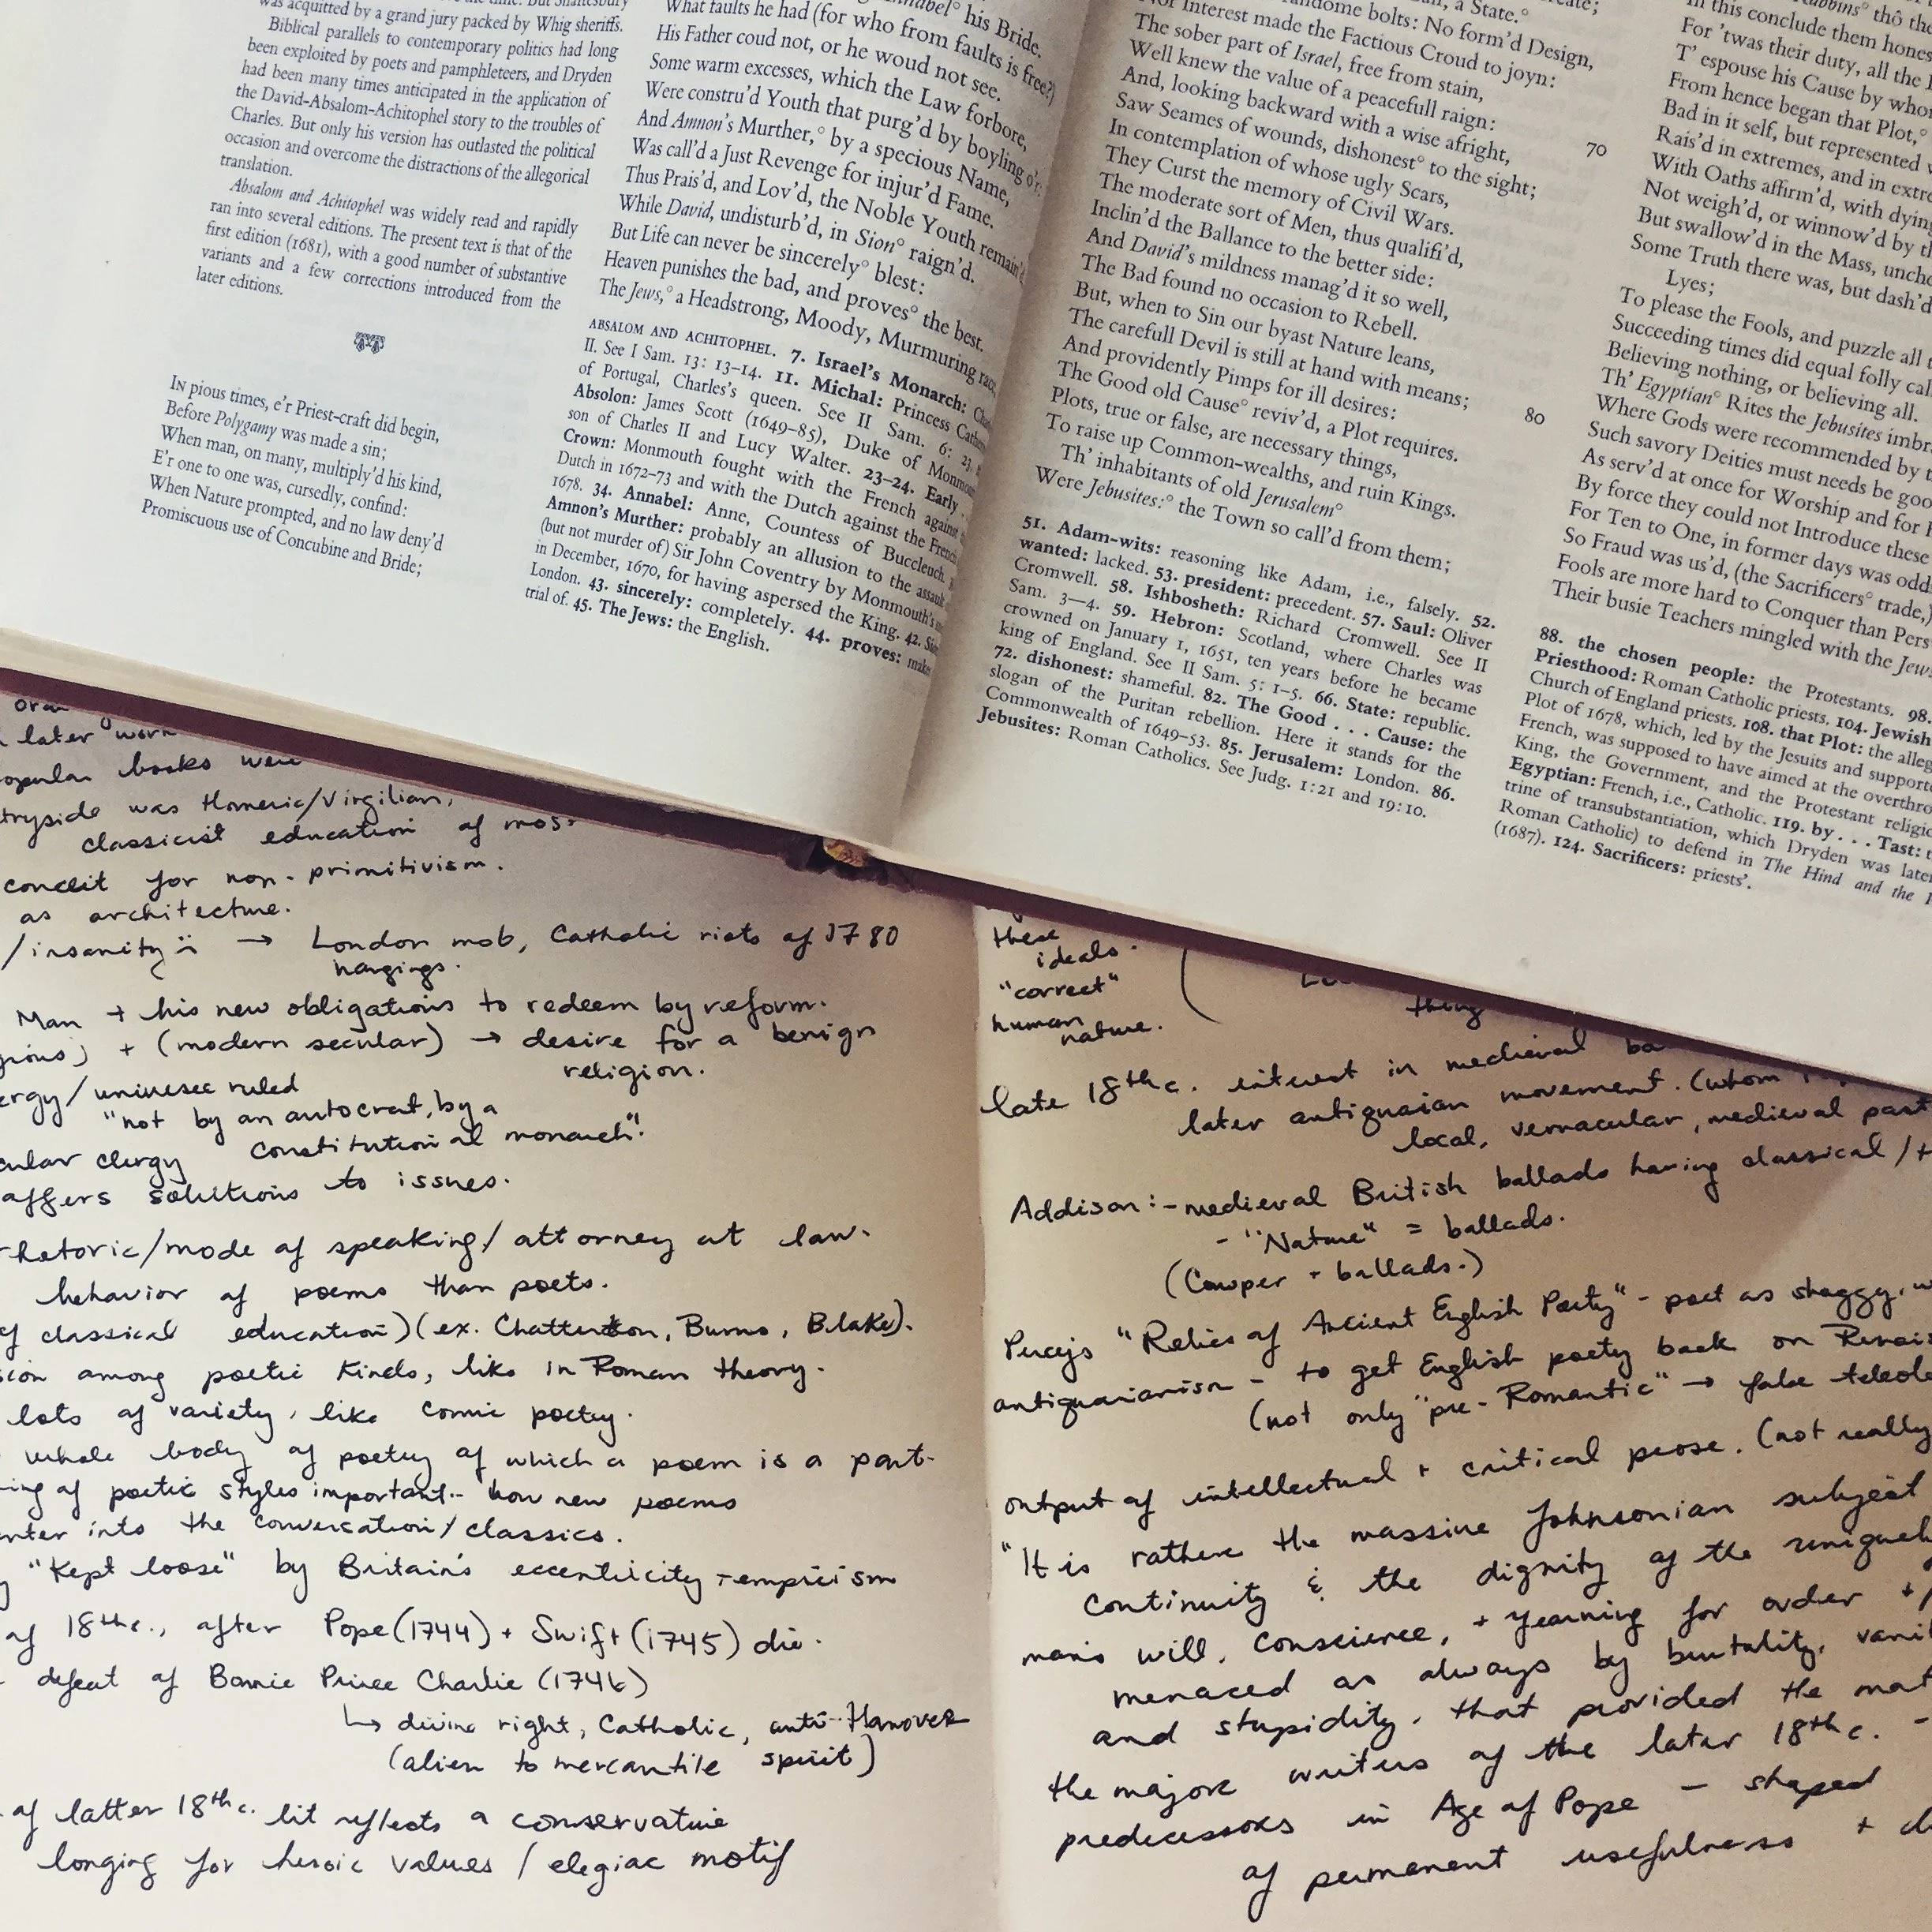 was acquitted by a grand jury packed by Whig sheriffs.
Biblical parallels to contemporary politics had long
been exploited by poets and pamphleteers, and Dryden
had been many times anticipated in the application of
the David-Absalom-Achitophel story to the troubles of
Charles. But only his version has outlasted the political
occasion and overcome the distractions of the allegorical
translation.
Absalom and Achitophel was widely read and rapidly
ran into several editions. The present text is that of the
first edition (1681), with a good number of substantive
variants and a few corrections introduced from the
later editions.
In pious times, e'r Priest-craft did begin,
Before Polygamy was made a sin;
When man, on many, multiply'd his kind,
E'r one to one was, cursedly, confind:
When Nature prompted, and no law deny'd
Promiscuous use of Concubine and Bride;
his Bride.
What faults he had (for who from faults is free?)
His Father coud not, or he woud not see.
Some warm excesses, which the Law forbore,
Were constru'd Youth that purg'd by boyling o'r:
And Amnon's Murther,° by a specious Name,
Was call'd a Just Revenge for injur'd Fame.
Thus Prais'd, and Lov'd, the Noble Youth remain'd
While David, undisturb'd, in Sion° raign'd.
But Life can never be sincerely° blest:
Heaven punishes the bad, and proves° the best.
The Jews,° a Headstrong, Moody, Murmuring race
ABSALOM AND ACHITOPHEL. 7. Israel's Monarch:
II. See I Sam. 13: 13–14. 11. Michal: Princess
of Portugal, Charles's queen. See II Sam. 6: 23.
Absolon: James Scott (1649–85), Duke of
son of Charles II and Lucy Walter. 23–24. Early
Crown: Monmouth fought with the French against
Dutch in 1672–73 and with the Dutch against the French
1678. 34. Annabel: Anne, Countess of Buccleuch.
Amnon's Murther: probably an allusion to the assault
(but not murder of) Sir John Coventry by Monmouth's
in December, 1670, for having aspersed the King. 42.
London. 43. sincerely: completely. 44. proves:
trial of. 45. The Jews: the English.
a State.°
randome bolts: No form'd Design,
Nor Interest made the Factious Croud to joyn:
The sober part of Israel, free from stain,
Well knew the value of a peacefull raign:
And, looking backward with a wise afright,
Saw Seames of wounds, dishonest° to the sight;
In contemplation of whose ugly Scars,
70
They Curst the memory of Civil Wars.
The moderate sort of Men, thus qualifi'd,
Inclin'd the Ballance to the better side:
And David's mildness manag'd it so well,
The Bad found no occasion to Rebell.
But, when to Sin our byast Nature leans,
The carefull Devil is still at hand with means;
And providently Pimps for ill desires:
80
The Good old Cause° reviv'd, a Plot requires.
Plots, true or false, are necessary things,
To raise up Common-wealths, and ruin Kings.
Th' inhabitants of old Jerusalem°
Were Jebusites:° the Town so call'd from them;
51. Adam-wits: reasoning like Adam, i.e., falsely. 52.
wanted: lacked. 53. president: precedent. 57. Saul: Oliver
Cromwell. 58. Ishbosheth: Richard Cromwell. See II
Sam. 3–4. 59. Hebron: Scotland, where Charles was
crowned on January 1, 1651, ten years before he became
king of England. See II Sam. 5: 1–5. 66. State: republic.
72. dishonest: shameful. 82. The Good . . . Cause: the
slogan of the Puritan rebellion. Here it stands for the
Commonwealth of 1649–53. 85. Jerusalem: London. 86.
Jebusites: Roman Catholics. See Judg. 1:21 and 19:10.
thô
In this conclude them
For 'twas their duty, all the
T' espouse his Cause by
From hence began that Plot,°
Bad in it self, but represented
Rais'd in extremes, and in
With Oaths affirm'd, with dying
Not weigh'd, or winnow'd by
But swallow'd in the Mass,
Some Truth there was, but dash'd
Lyes;
To please the Fools, and puzzle all
Succeeding times did equal folly
Believing nothing, or believing all.
Th' Egyptian° Rites the Jebusites
Where Gods were recommended by
Such savory Deities must needs be
As serv'd at once for Worship and for
By force they could not Introduce these
For Ten to One, in former days was odd
So Fraud was us'd, (the Sacrificers° trade,)
Fools are more hard to Conquer than
Their busie Teachers mingled with the
88. the chosen people: the Protestants. 98.
Priesthood: Roman Catholic priests. 104. Jewish
Church of England priests. 108. that Plot: the
Plot of 1678, which, led by the Jesuits and
French, was supposed to have aimed at the
King, the Government, and the Protestant
Egyptian: French, i.e., Catholic. 119. by . . . Tast:
trine of transubstantiation, which Dryden was
Roman Catholic) to defend in The Hind and the
(1687). 124. Sacrificers: priests'.
later work
books were
was Homeric/Virgilian,
classicist education of
conceit for non-primitivism.
as architecture.
/insanity → London mob, Catholic riots of 1780
hangings.
Man + his new obligations to redeem by reform.
+ (modern secular) → desire for a benign
religion.
ruled
"not by an autocrat, by a
constitutional monarch".
clergy
offers solutions to issues.
rhetoric/mode of speaking/attorney at law.
behavior of poems than poets.
of classical education) (ex. Chatterton, Burns, Blake).
among poetic kinds, like in Roman theory.
lots of variety, like comic poetry.
whole body of poetry of which a poem is a part.
of poetic styles important - how new poems
enter into the conversation/classics.
"Kept loose" by Britain's eccentricity + empricism
of 18th c., after Pope (1744) + Swift (1745) die.
defeat of Bonnie Prince Charlie (1746)
↳ divine right, Catholic, anti-Hanover
(alien to mercantile spirit)
of latter 18th c. lit reflects a conservative
longing for heroic values / elegiac motif
these
ideals.
"correct"
human
nature.
thing
late 18th c. interest in medieval
later antiquaian movement. (whom
local, vernacular, medieval past
Addison: - medieval British ballads having classical /
- "Nature" = ballads.
(Cowper + ballads.)
Percy's "Relics of Ancient English Poetry" - poet as shaggy,
antiquarianism - to get English poetry back on
(not only "pre-Romantic" → false
output of intellectual + critical prose. (not really
"It is rather the massive Johnsonian subject
continuity & the dignity of the
man's will, conscience, + yearning for order +
menaced as always by brutality,
and stupidity, that provided the
the major writers of the later 18th c. -
predecessors in Age of Pope - shaped
of permanent usefulness +